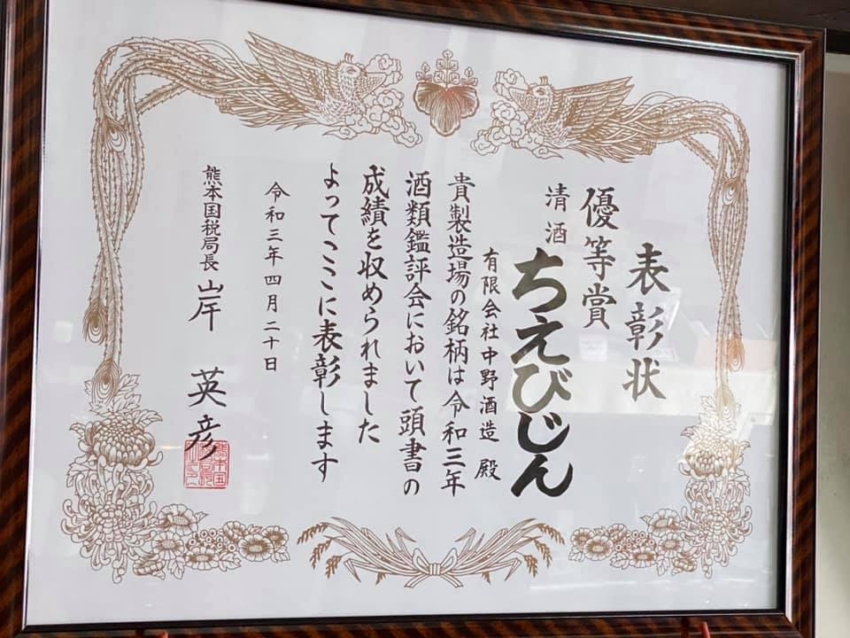 表彰状
優等賞
清酒 ちえびじん
有限会社中野酒造 殿
貴製造場の銘柄は令和三年
酒類鑑評会において頭書の
成績を収められました
よってここに表彰します
令和三年四月二十日
熊本国税局長 岸 英彦